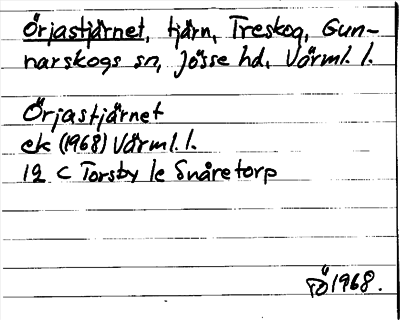 Örjastjärnet, tjärn, Treskog, Gun-
narskogs sn, Jösse hd, Värml. l.
Örjastjärnet
ek (1968) Värml. l.
12 C Torsby 1e Snåretorp
FÖ 1968.